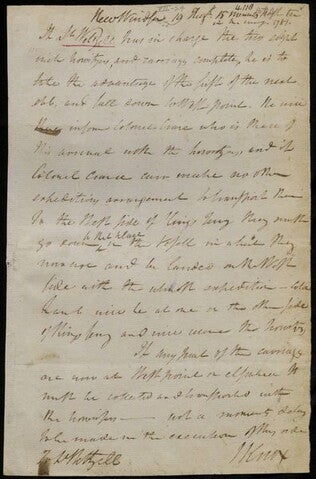 New Windsor 19 Augt 15 minutes past ten
in the evening 1781.
Lt St has in charge the two eight
inch howitzers, and carriages complete, he is to
take the advantage of the first of the next
ebb, and fall down to West point. He will
inform Colonel Crane who is there of
his arrival with the howitzers, and if
Colonel Crane can make no other
expeditious arrangement to transport them
to the West side of Kings ferry they must
go down to that place in the vessel in which they
now are and be landed on the West
side with the utmost expedition – Colo
Lamb will be at one or the other side
of Kings ferry and will receive the howitzers
If any part of the carriages
are now at West point or elsewhere it
must be collected and transported with
the howitzers – not a moments delay
to be made in the execution of this order
To Lt
H Knox